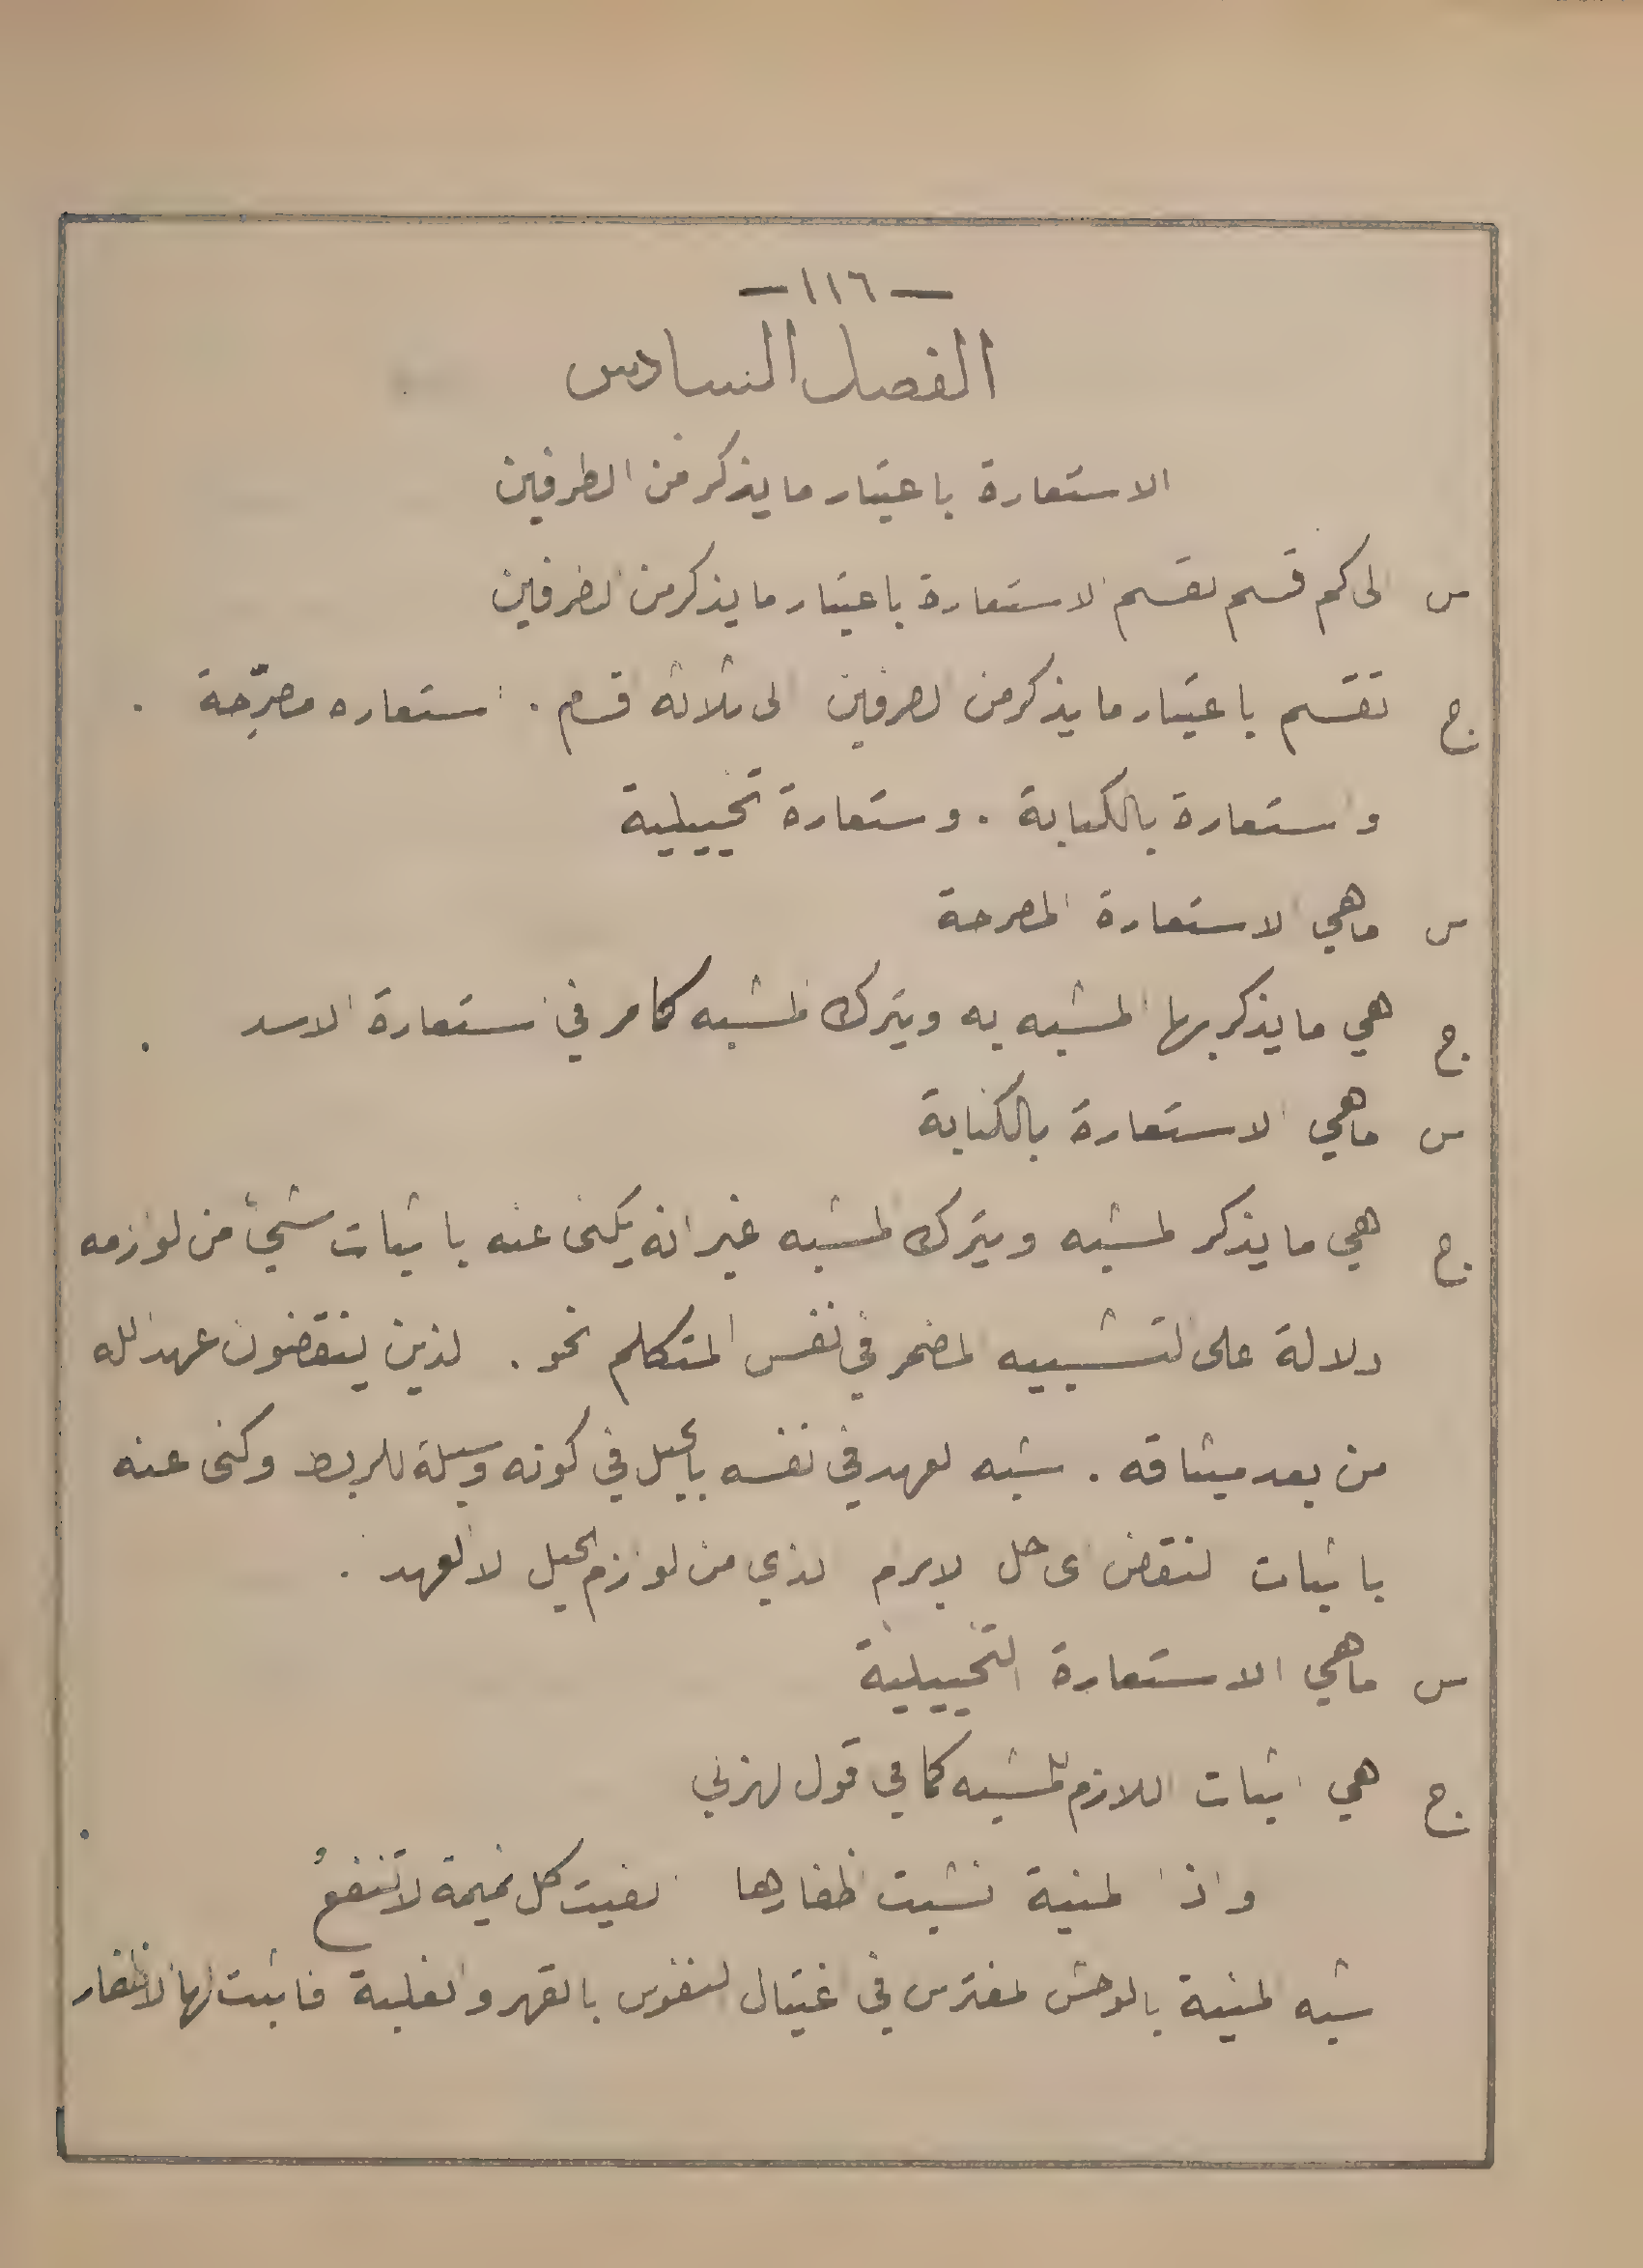 — ١١٦ —
الفصل السادس
الاستعارة باعتبار ما يذكر من الطرفين
س الى كم قسم تقسم الاستعارة باعتبار ما يذكر من الطرفين
ج تقسم باعتبار ما يذكر من الطرفين الى ثلاثة اقسام . استعاره مصرِّحة .
واستعارة بالكناية . واستعارة تخييلية
س ماهي الاستعارة المصرحة
ج هي ما يذكر بها المشبه به ويترك المشبه كما مر في استعارة الاسد .
س ماهي الاستعارة بالكناية
ج هي ما يذكر المشبه ويترك المشبه غير انه يكنى عنه باثبات شيئ من لوازمه
دلالة على التشبيه المضمر في نفس المتكلم نحو . الذين ينقضون عهد الله
من بعد ميثاقه . شبه العهد في نفسه بالحبل في كونه وسيلة للربط وكنى عنه
باثبات النقض اى حل الابرام الذي من لوازم الحبل لا العهد .
س ماهي الاستعارة التخييلية
ج هي اثبات اللازم للمشبه كما في قول الهزلي
واذا المنية انشبت اظفارها الفيت كل تميمة لا تنفعُ
شبه المنية بالوحش المفترس في اغتيال النفوس بالقهر والغلبة فاثبت لها الاظفار